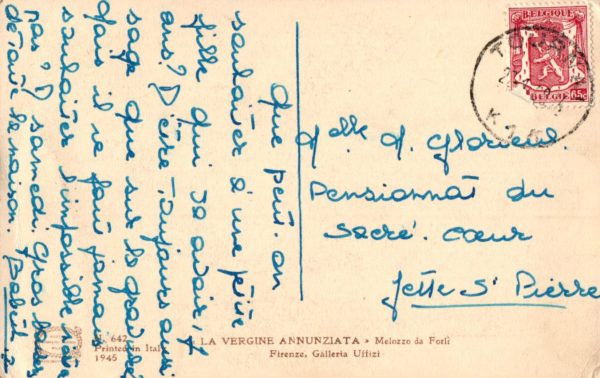 Que peut-on
souhaiter à une petite
fille qui va avoir
ans? D'être toujours aussi
sage que sur la gravure
mais il ne faut jamais
souhaiter l'impossible
pas? A samedi. Gros baisers
de toute la maison.
BELGIQUE
BELGIE 65c
Melle M. Glorieux.
Pensionnat du
Sacré-Cœur
Jette St Pierre
642
Printed in Italy
1945
« LA VERGINE ANNUNZIATA » Melozzo da Forlì
Firenze, Galleria Uffizi